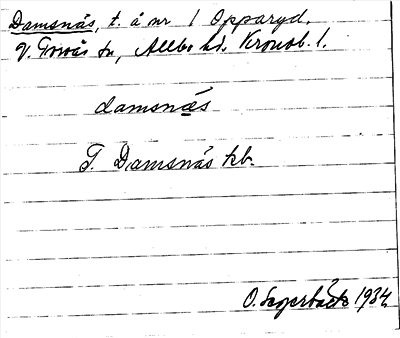 Damsnäs, t. å nr 1 Opparyd.
V. Torsås sn, Allbo hd. Kronob. l.
damsnäs
T. Damsnäs kb.
O. Sagerbäck 1934